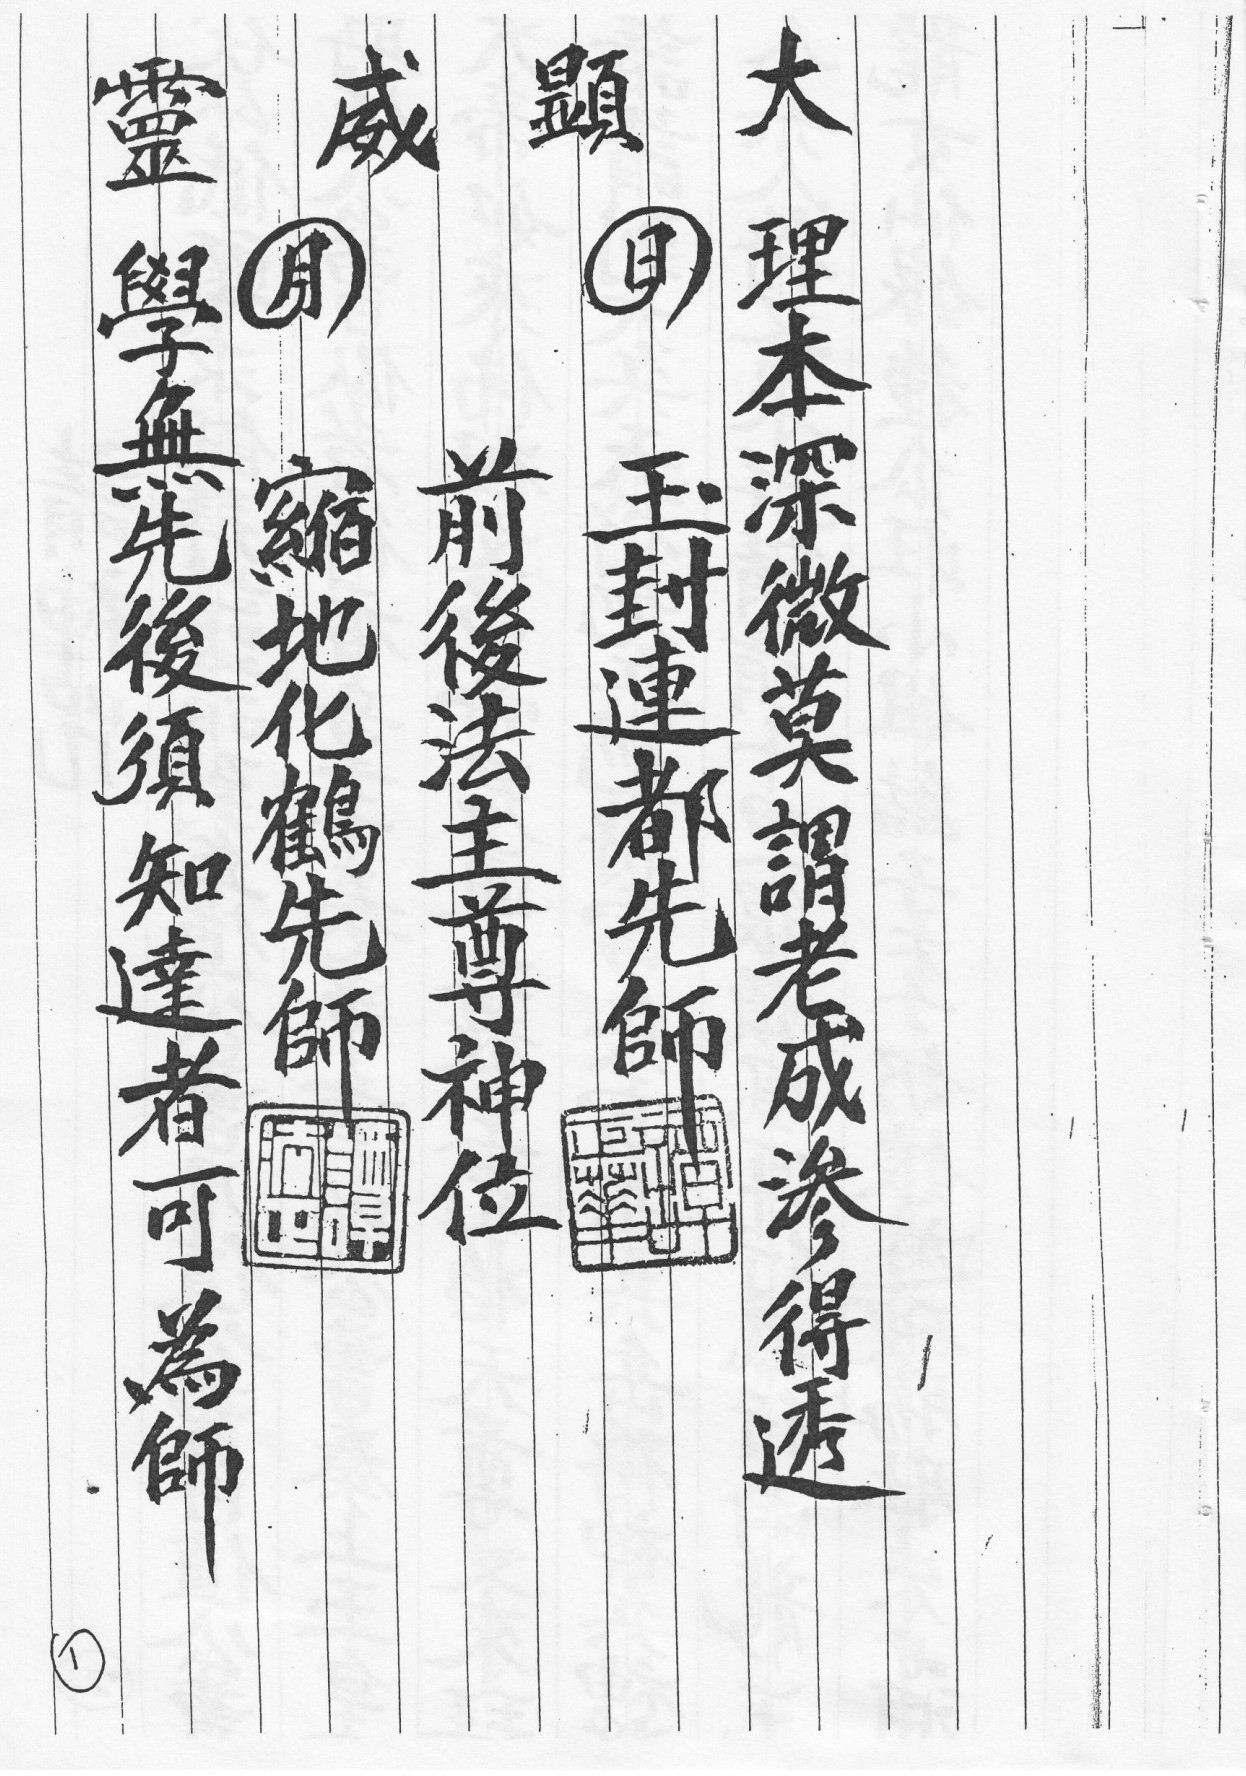 大顯威靈
理本深微莫謂老成滲得透
日
玉封連都先師
前後法主尊神位
月
縮地化鶴先師
學無先後須知達者可為師
1